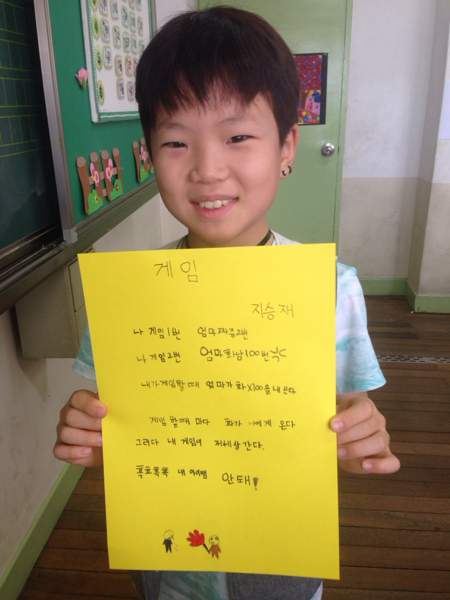 게임
지승재
나 게임 1번 엄마 짜증 2번
나 게임 2번 엄마 화남 100번
내가 게임할때 엄마가 화 X100을 내신다
게임 할때 마다 화가 나에게 온다
그러다 내 게임이 저세상 간다.
흑흑흑흑 내 아이템 안돼!